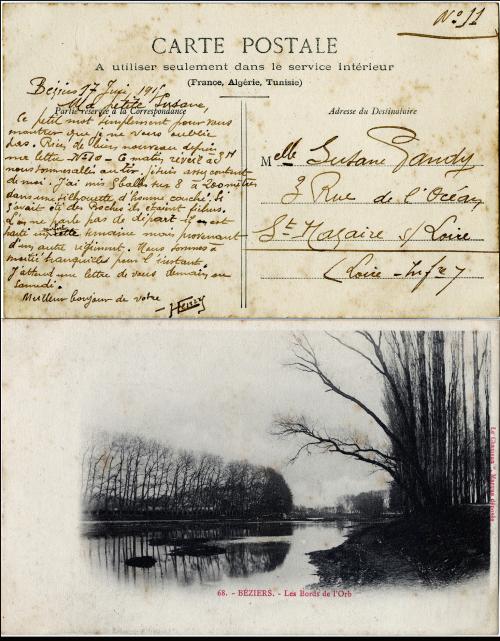 N° 11
CARTE POSTALE
A utiliser seulement dans le service intérieur
(France, Algérie, Tunisie)
Béziers 17 Juin 1915
Ma petite Susane,
Partie réservée à la Correspondance
Adresse du Destinataire
Ce petit mot simplement pour vous
montrer que je ne vous oublie
pas. Rien de bien nouveau depuis
ma lettre N° 10 - Ce matin, réveil à 3H
nous sommes allés au tir, j'étais assez content
de moi. J'ai mis 8 balles sur 8 à 200 mètres
dans une silhouette d'homme couché. Si
ç'avait été des Boches ils étaient fichus.
L'on ne parle pas de départ. Il en est
parti cette semaine mais provenant
d'un autre régiment. Nous sommes à
moitié tranquilles pour l'instant.
J'attend une lettre de vous demain ou
samedi.
Meilleur bonjour de votre
Melle Susane Gaudy
3 Rue de l'Océan
St Nazaire s/ Loire
(Loire-Infre)
68. - BÉZIERS. - Les Bords de l'Orb